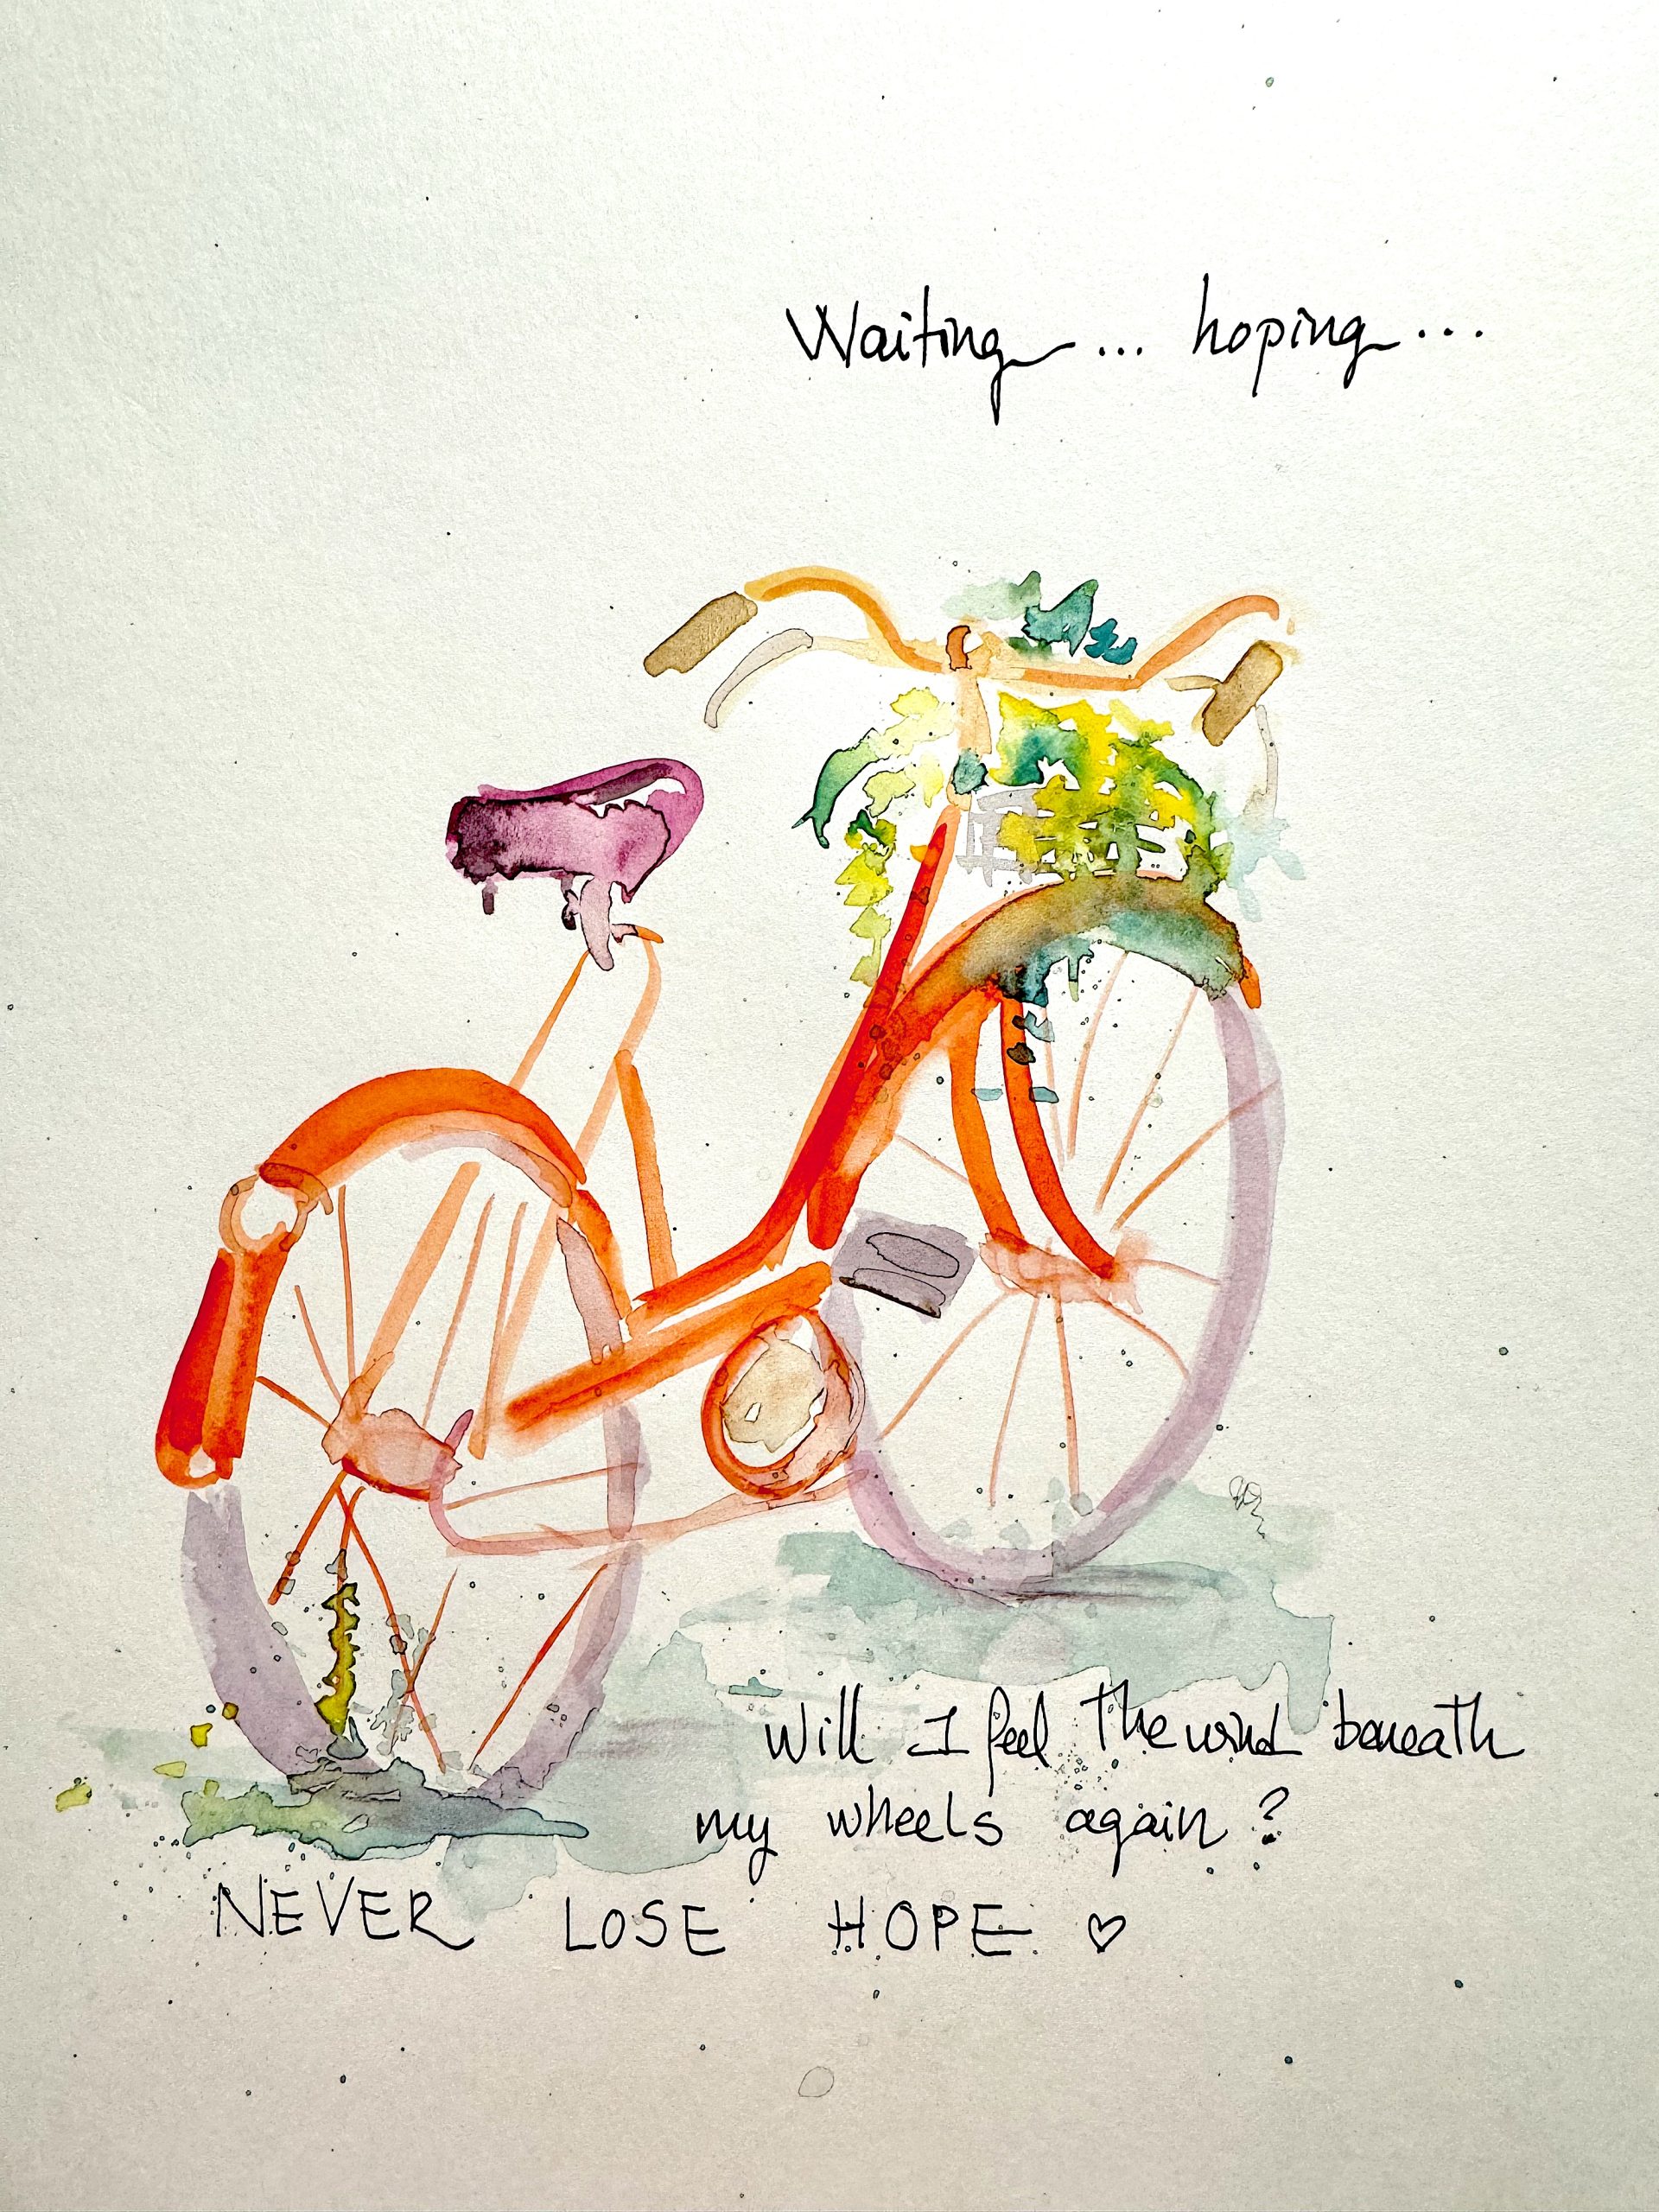 Waiting... hoping...
Will I feel the wind beneath
my wheels again?
NEVER LOSE HOPE ♡